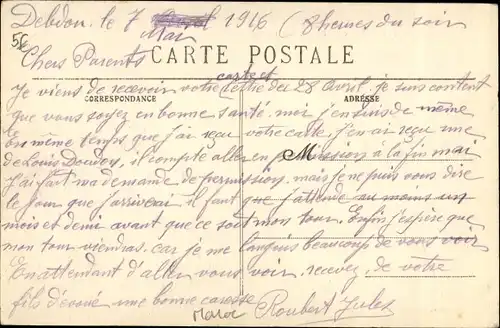 Debdou. le 7 Avril 1916 (8 heures du soir
Mai
56
Chers Parents
CARTE POSTALE
carte et
Je viens de recevoir votre lettre du 28 Avril, je suis content
CORRESPONDANCE
ADRESSE
que vous soyez en bonne santé. moi j'en suis de même
En même temps que j'ai reçu votre carte j'en ai reçu une
de Louis Doudou, il compte aller en permission à la fin mai
M
J'ai fait ma demande de permission, mais je ne puis vous dire
le jour que j'arriverai il faut que j'attende au moins un
mois et demi avant que ce soit mon tour. Enfin j'espère que
mon tour viendras. car je me languis beaucoup de vous voir
En attendant d'aller vous voir, recevez, de votre
fils dévoué une bonne caresse
Roubert Jules
Maroc